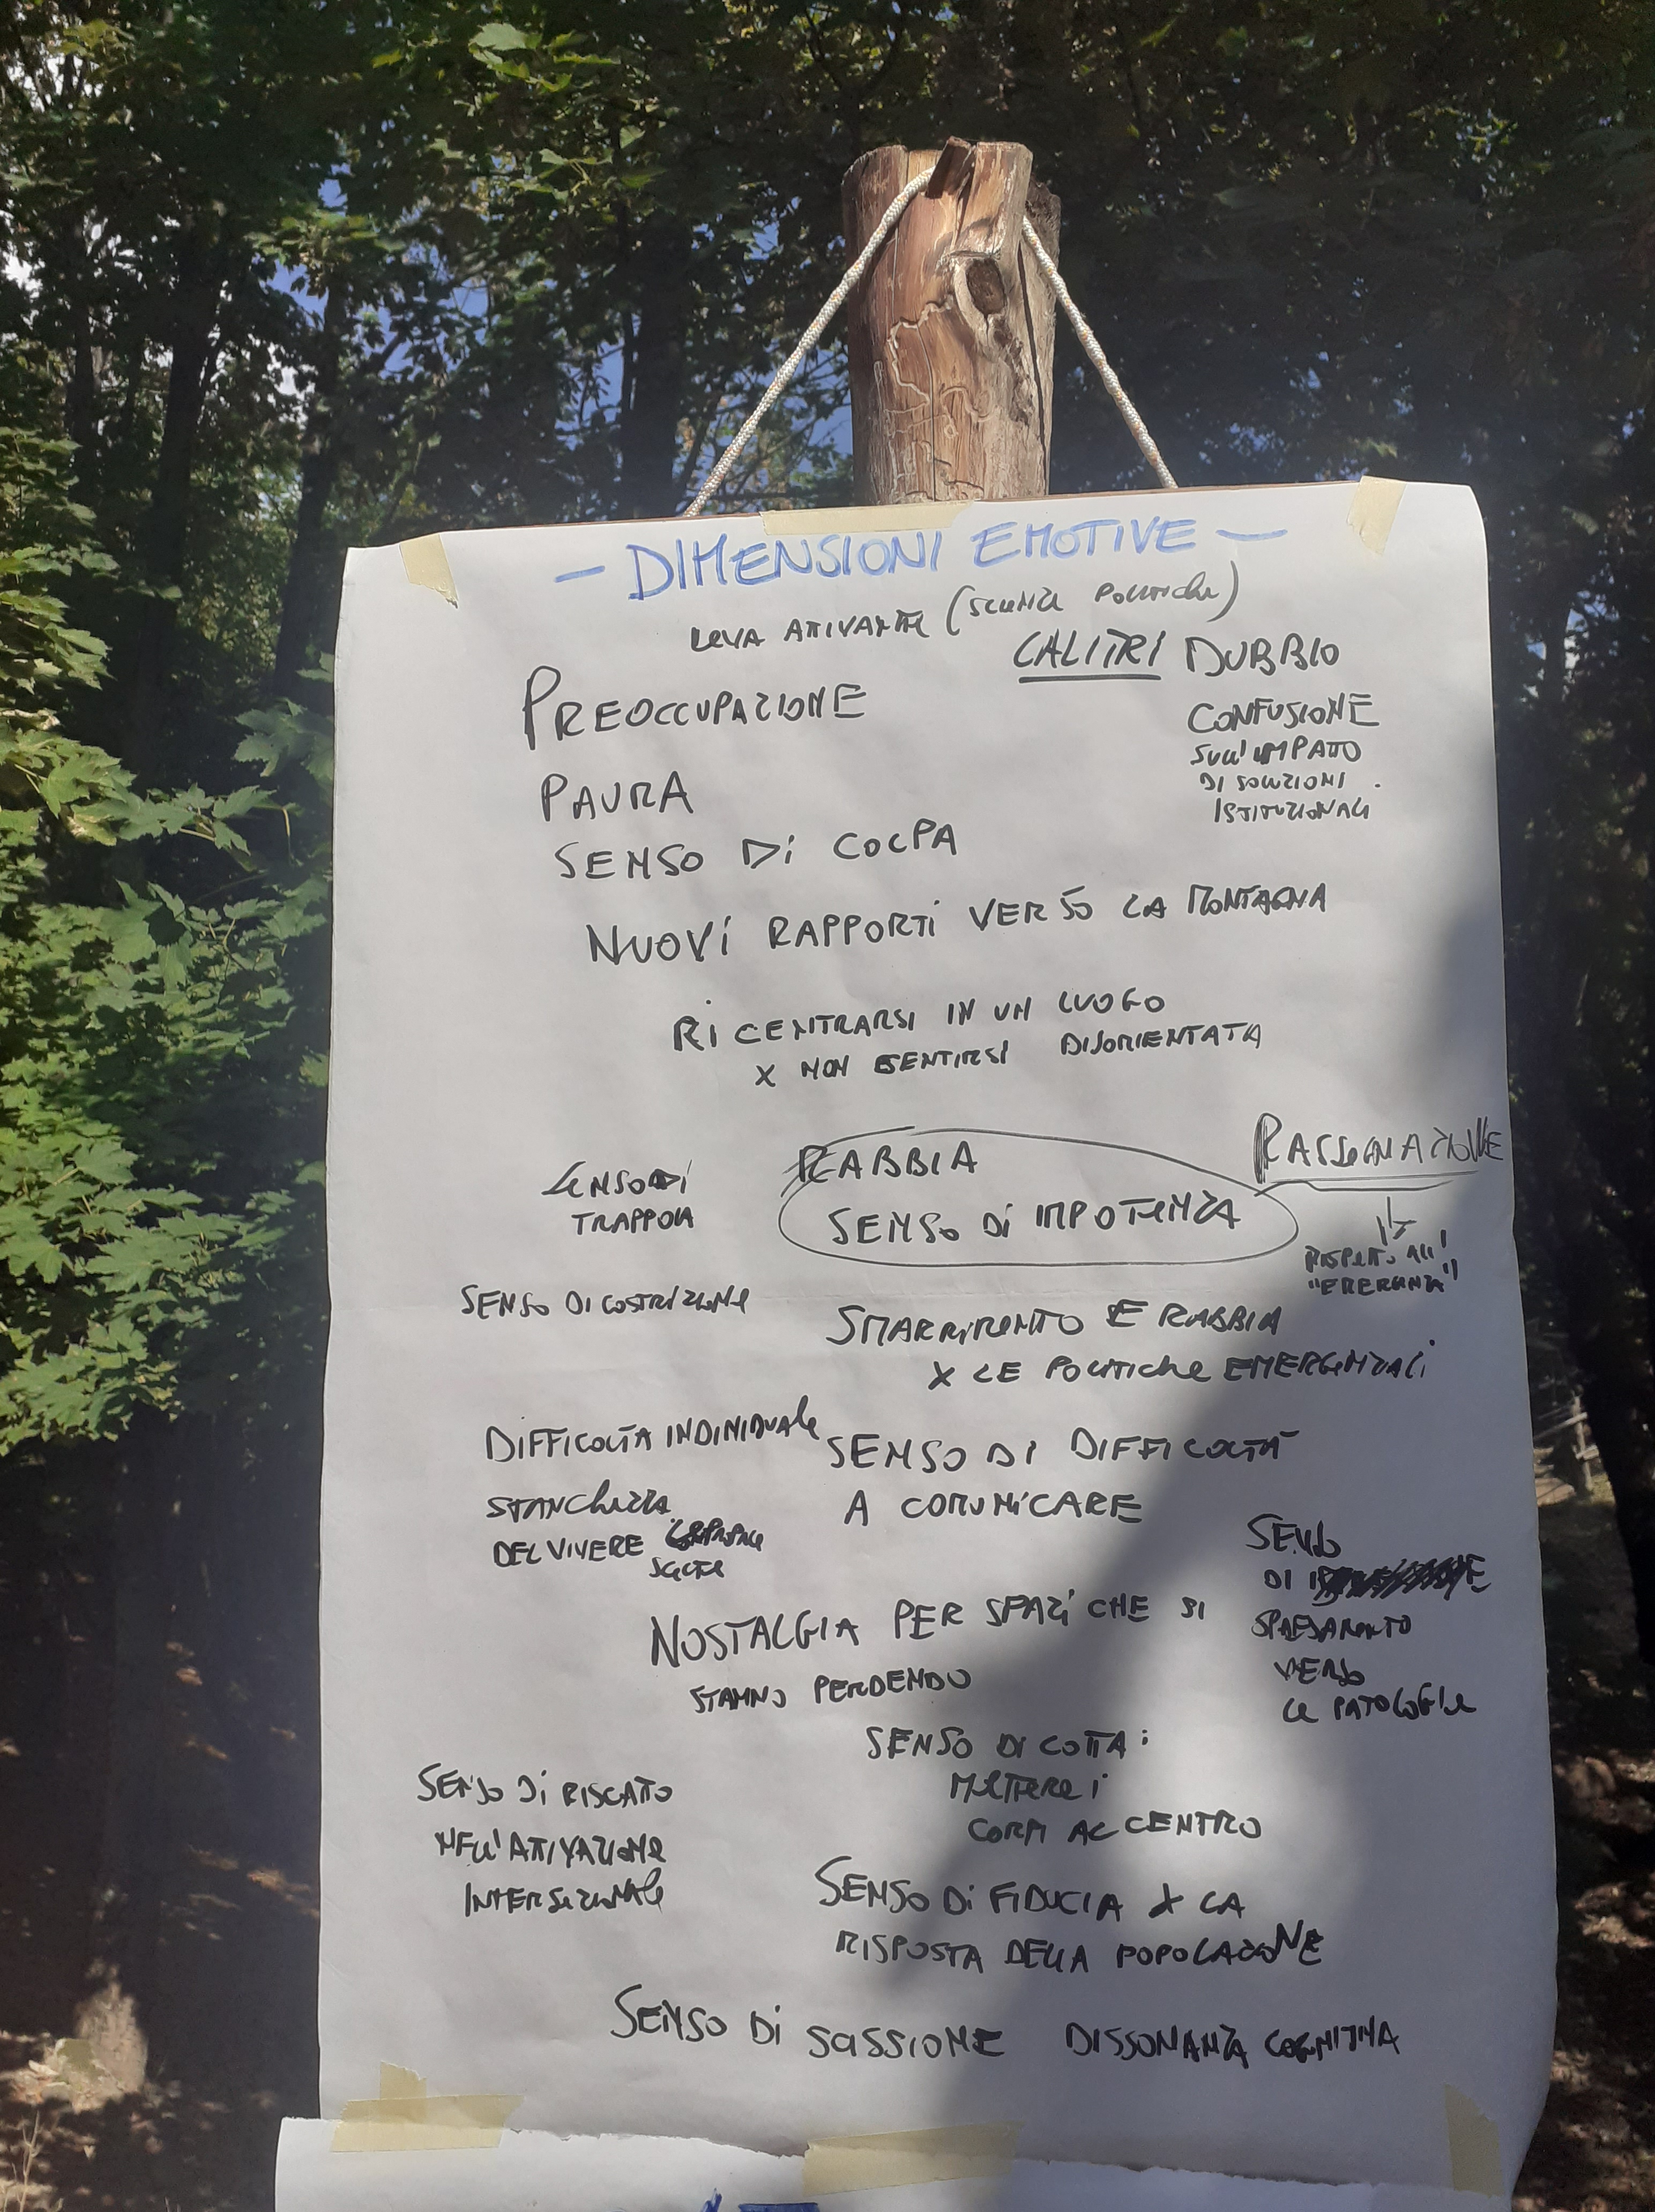 - DIMENSIONI EMOTIVE -
LEVA ATTIVANTE ( POLITICHE)
CALITRI DUBBIO
PREOCCUPAZIONE
CONFUSIONE
SULL'IMPATTO
DI SOLUZIONI
ISTITUZIONALI
PAURA
SENSO Di COLPA
NUOVi RAPPORTi VERSO LA MONTAGNA
RiCENTRARSI IN UN LUOGO
X NON SENTIRSI DISORIENTATA
RABBIA
RASSEGNAZIONE
SENSO Di
TRAPPOLA
SENSO Di IMPOTENZA
RISPETTO ALL'
SENSO DI COSTRIZIONE
SMARRIMENTO E RABBIA
X LE POLITICHE EMERGENZIALI
DIFFICOLTÀ INDIVIDUALE
SENSO DI DIFFICOLTÀ
A COMUNICARE
STANCHEZZA
DEL VIVERE
SENSO
DI
SPAESAMENTO
VERSO
LE PATOLOGIE
NOSTALGIA PER SPAZi CHE SI
STANNO PERDENDO
SENSO DI LOTTA:
METTERE I
CORPI AL CENTRO
SENSO Di RISCATTO
NELL'ATTIVAZIONE
INTERSEZIONALE
SENSO Di FIDUCIA X LA
RISPOSTA DELLA POPOLAZIONE
SENSO Di DISSONANZA COGNITIVA